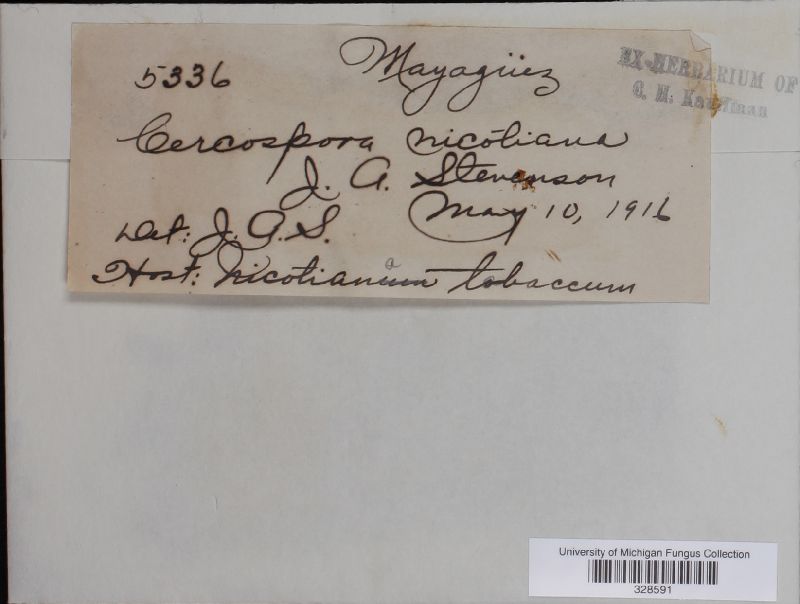 5336 Mayagüez
EX-HERBARIUM OF
C. H. Kauffman
Cercospora nicotiana
J. A. Stevenson
Det: J. A. S. May 10, 1916
Host: Nicotianaum tobaccum
University of Michigan Fungus Collection
328591